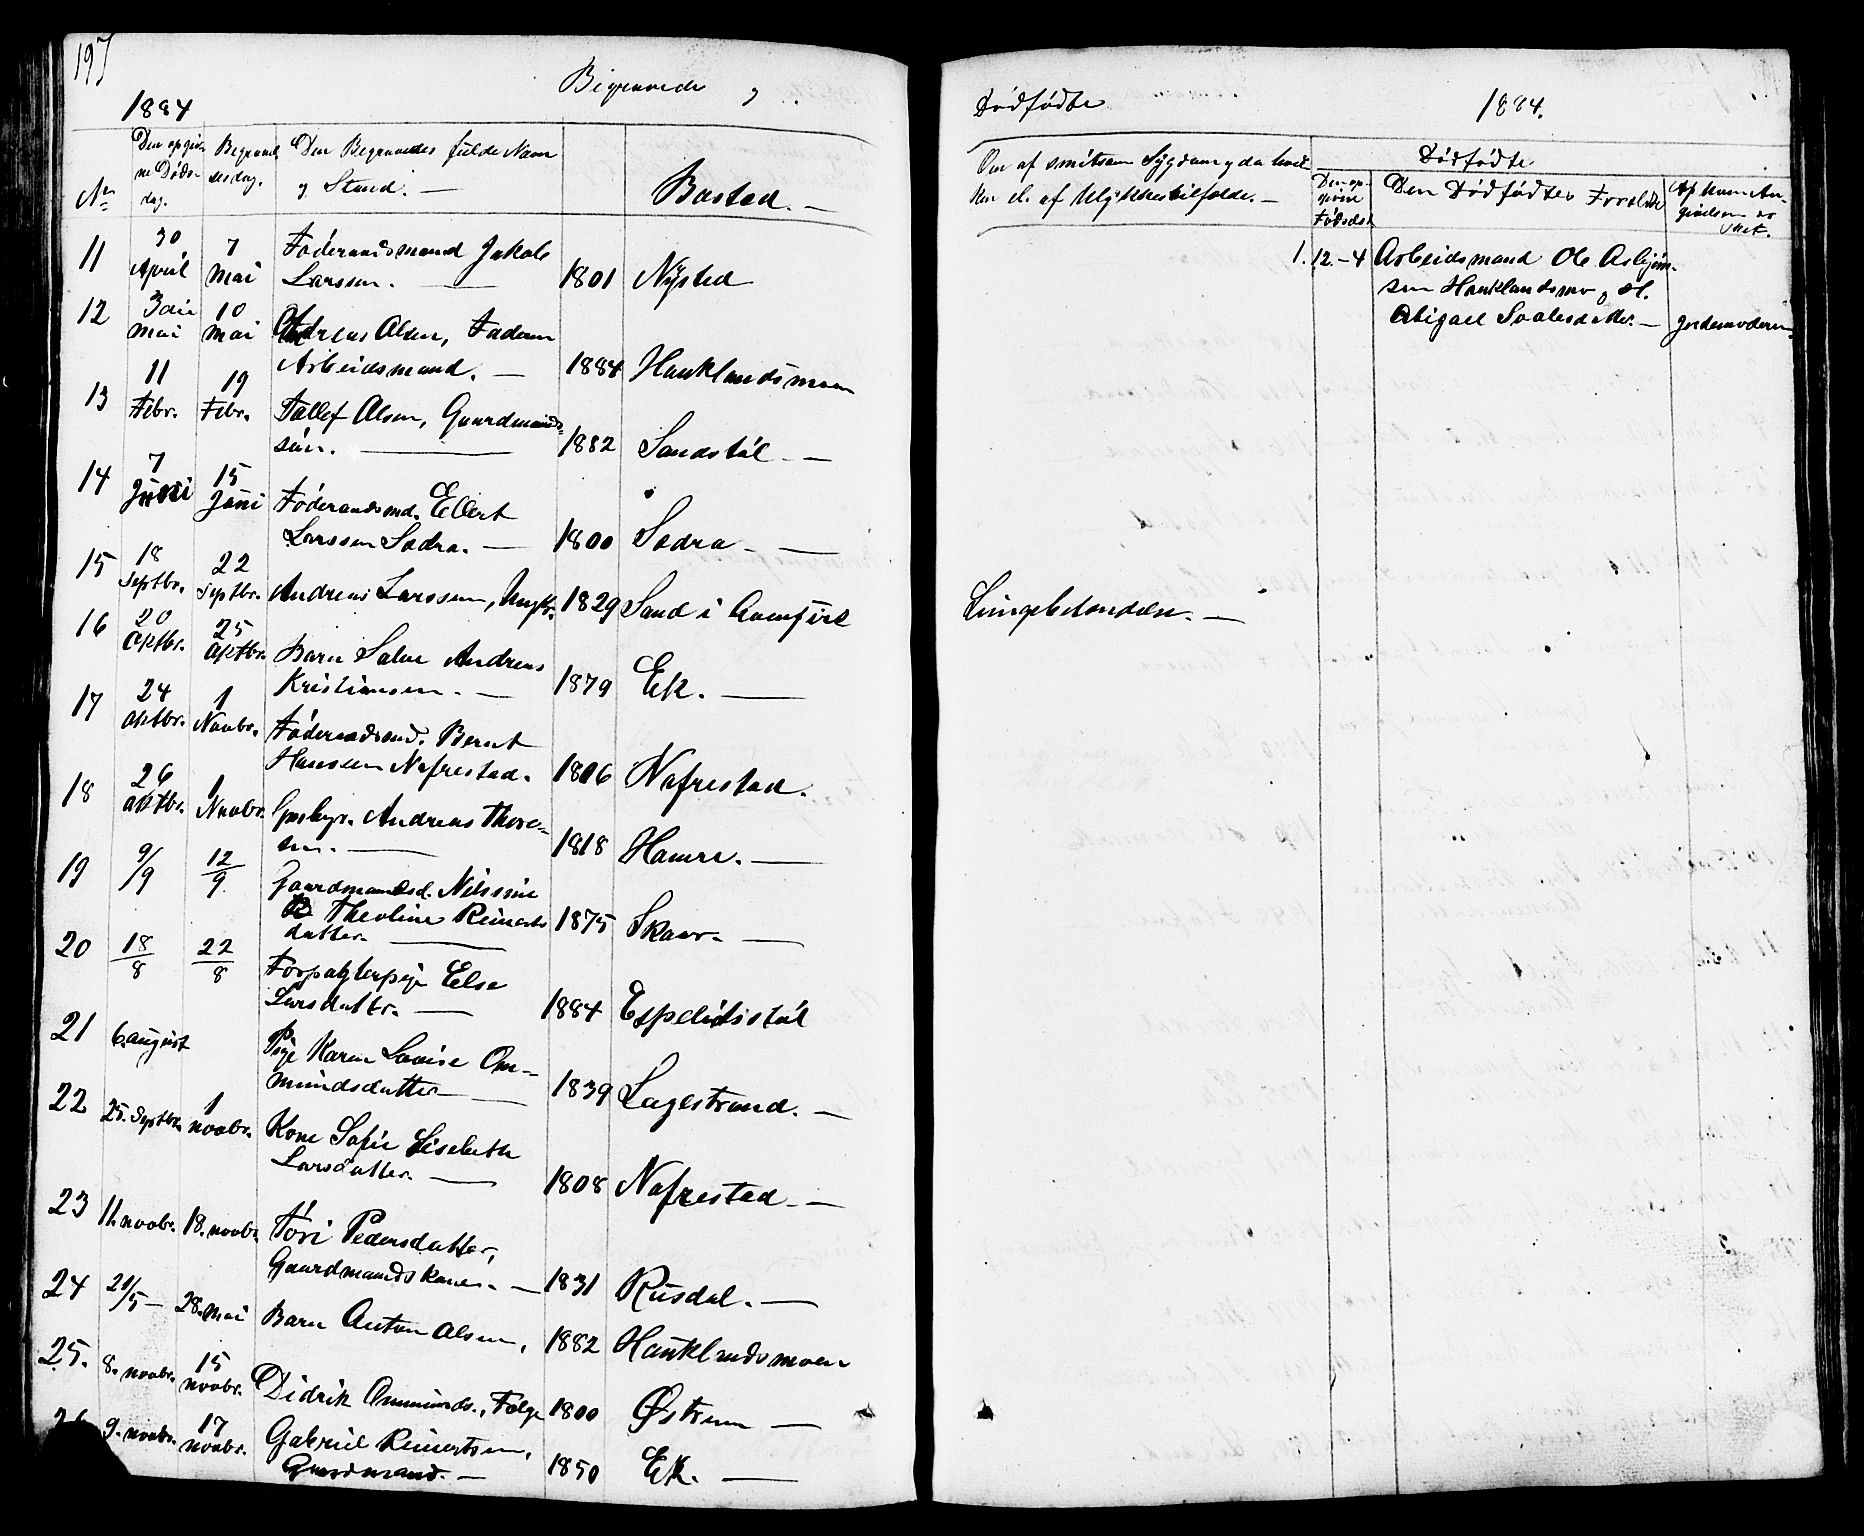 197
1884
Begravede og
Den opgiv- Begravel- Den Begravedes fulde Navn
No ne Døds- sesdag. og Stand. — Bosted. —
dag.
11 30 April 7 Mai Føderaadsmand Jakob
Larssen. — 1801 Nysted
12 3die Mai 10 Mai Andreas Olsen, Faderen
Arbeidsmand. — 1884 Hauklandsmoen
13 11 Febr. 19 Febr. Tallef Olsen, Gaardmands-
søn. — 1882 Sandstøl —
14 7 Juni 15 Juni Føderaadsmd. Ellert
Larssen Sodra. — 1800 Sodra —
15 18 Septbr. 22 Septbr. Andreas Larssen, Ungk. 1829 Sand i
16 20 Oktbr. 25 Oktbr. Barn Salve Andreas
Kristiansen. — 1879 Ek. —
17 24 Oktbr. 1 Novbr. Føderaadsmd. Bernt
Hanssen Nafrestad. 1806 Nafrestad.
18 26 Oktbr. 1 Novbr. Gbrbgr. Andreas Thore-
sen. — 1818 Hamre. —
19 9/9 12/9 Gaardmandsd. Nilssine
Theoline Reinerts
datter. — 1875 Skaar. —
20 18/8 22/8 Forpagterpige Else
Larsdatter. — 1884 Espelidsstøl
21 6. august Pige Karen Lovise Om-
mundsdatter — 1839 Lagestrand. —
22 25. Septbr. 1 novbr. Kone Sofie Liselbeth
Larsdatter. — 1808 Nafrestad. —
23 11. novbr. 18. novbr. Tori Pedersdatter,
Gaardmandskone. — 1831 Rusdal. —
24 21/5 — 28. Mai Barn Anton Olsen, 1882 Hauklandsmoen
25. 8. novbr. 15 novbr. Didrik Ommunds., Følge 1800 Østrem —
26 9. novbr. 17 novbr. Gabriel Reinertsen,
Gaardmand. — 1850 Ek. —
Dødfødte 1884.
Om af smitsom Sygdom og da hvil-
ken el. af Ulykkestilfælde. —
Dødfødte
Den op-
givne
Fødselsd.
Den Dødfødtes Forældre
Af hvem An-
givelsen er
sket.
1. 12-4 Arbeidsmand Ole Asbjørn-
sen Hauklandsmo og H.
Abigael Svalesdatter. — Jordemoderen
Lungebetændelse. —